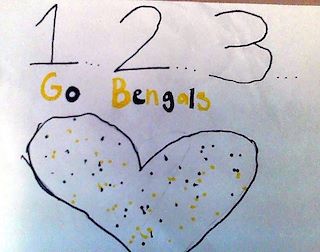 1... 2... 3...
Go Bengals